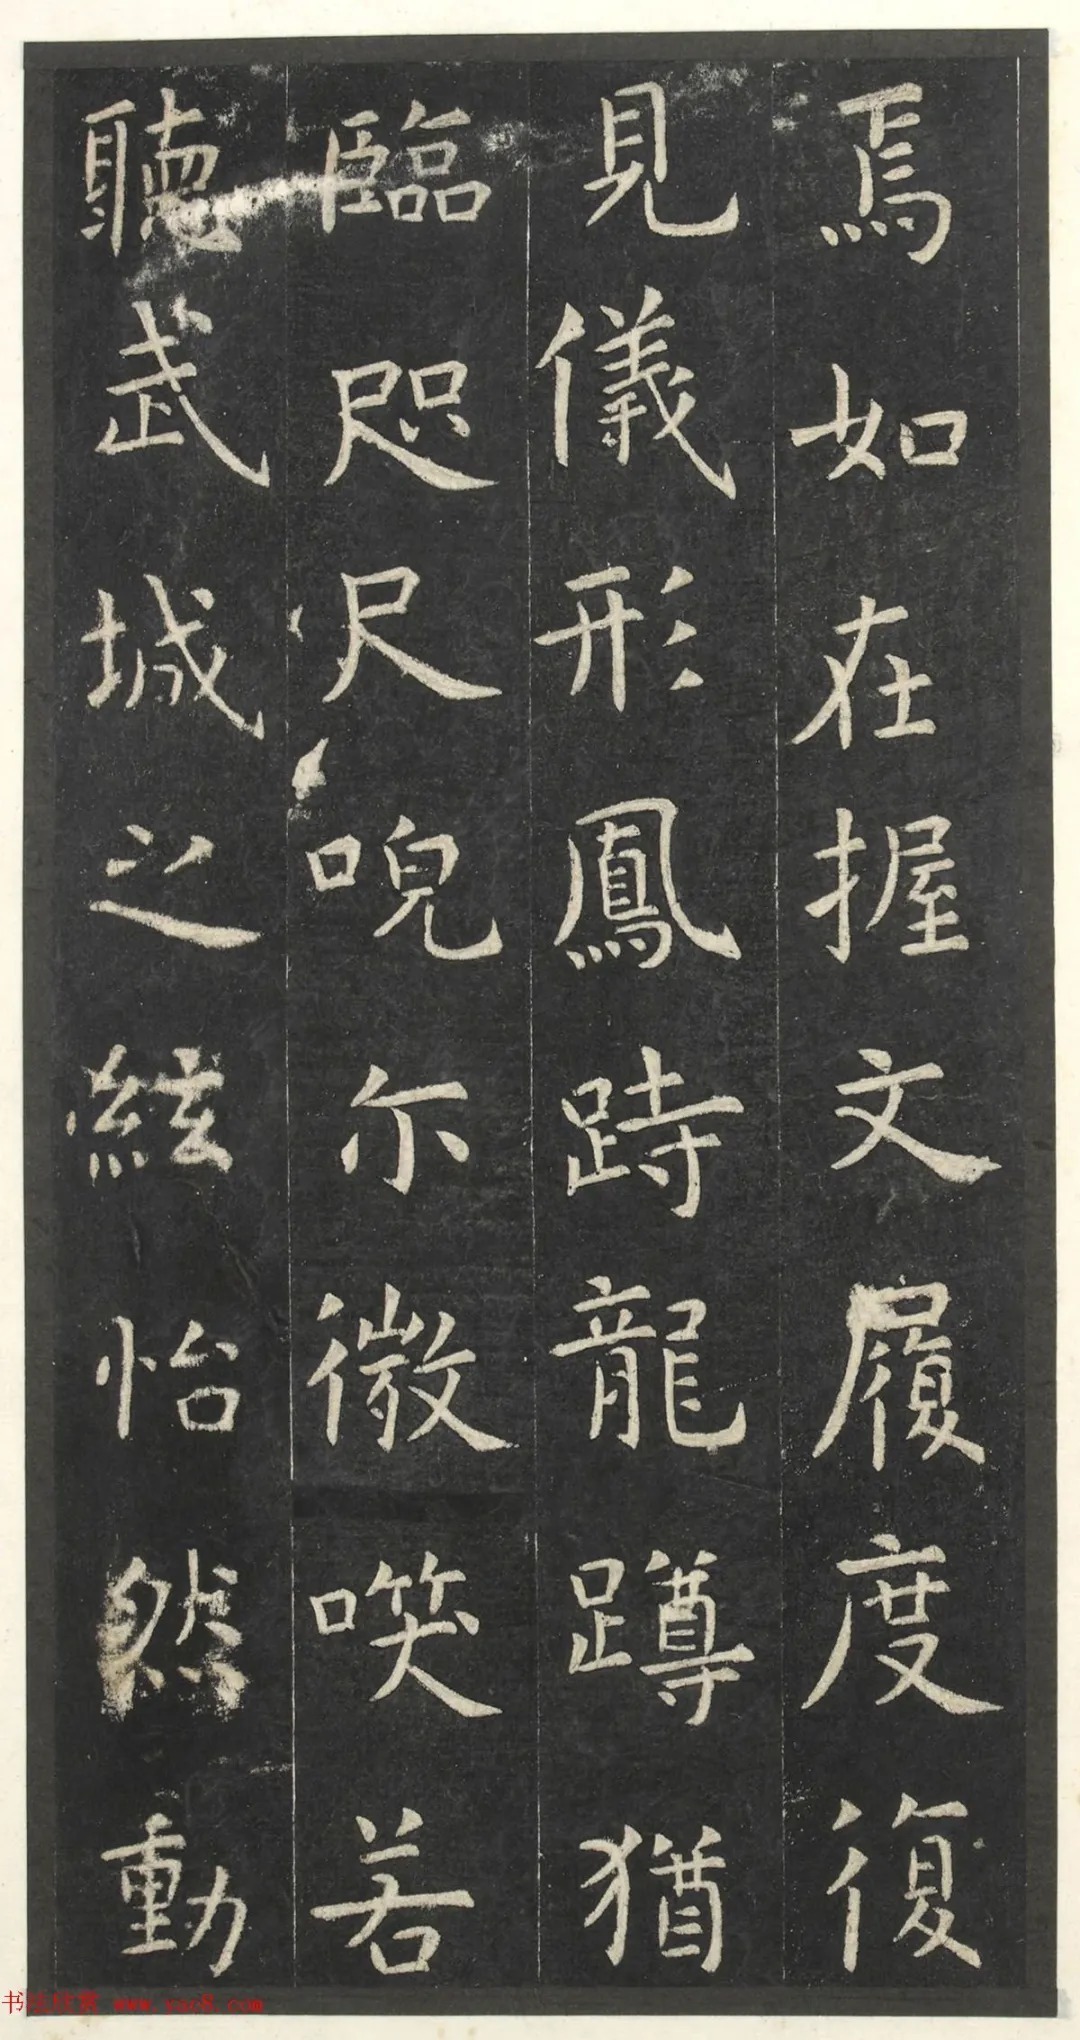 焉如在握文履度復
見儀形鳳跱龍蹲猶
臨咫尺唲尒微噗若
聽武城之絃怡然動
书法欣赏 www.yac8.com